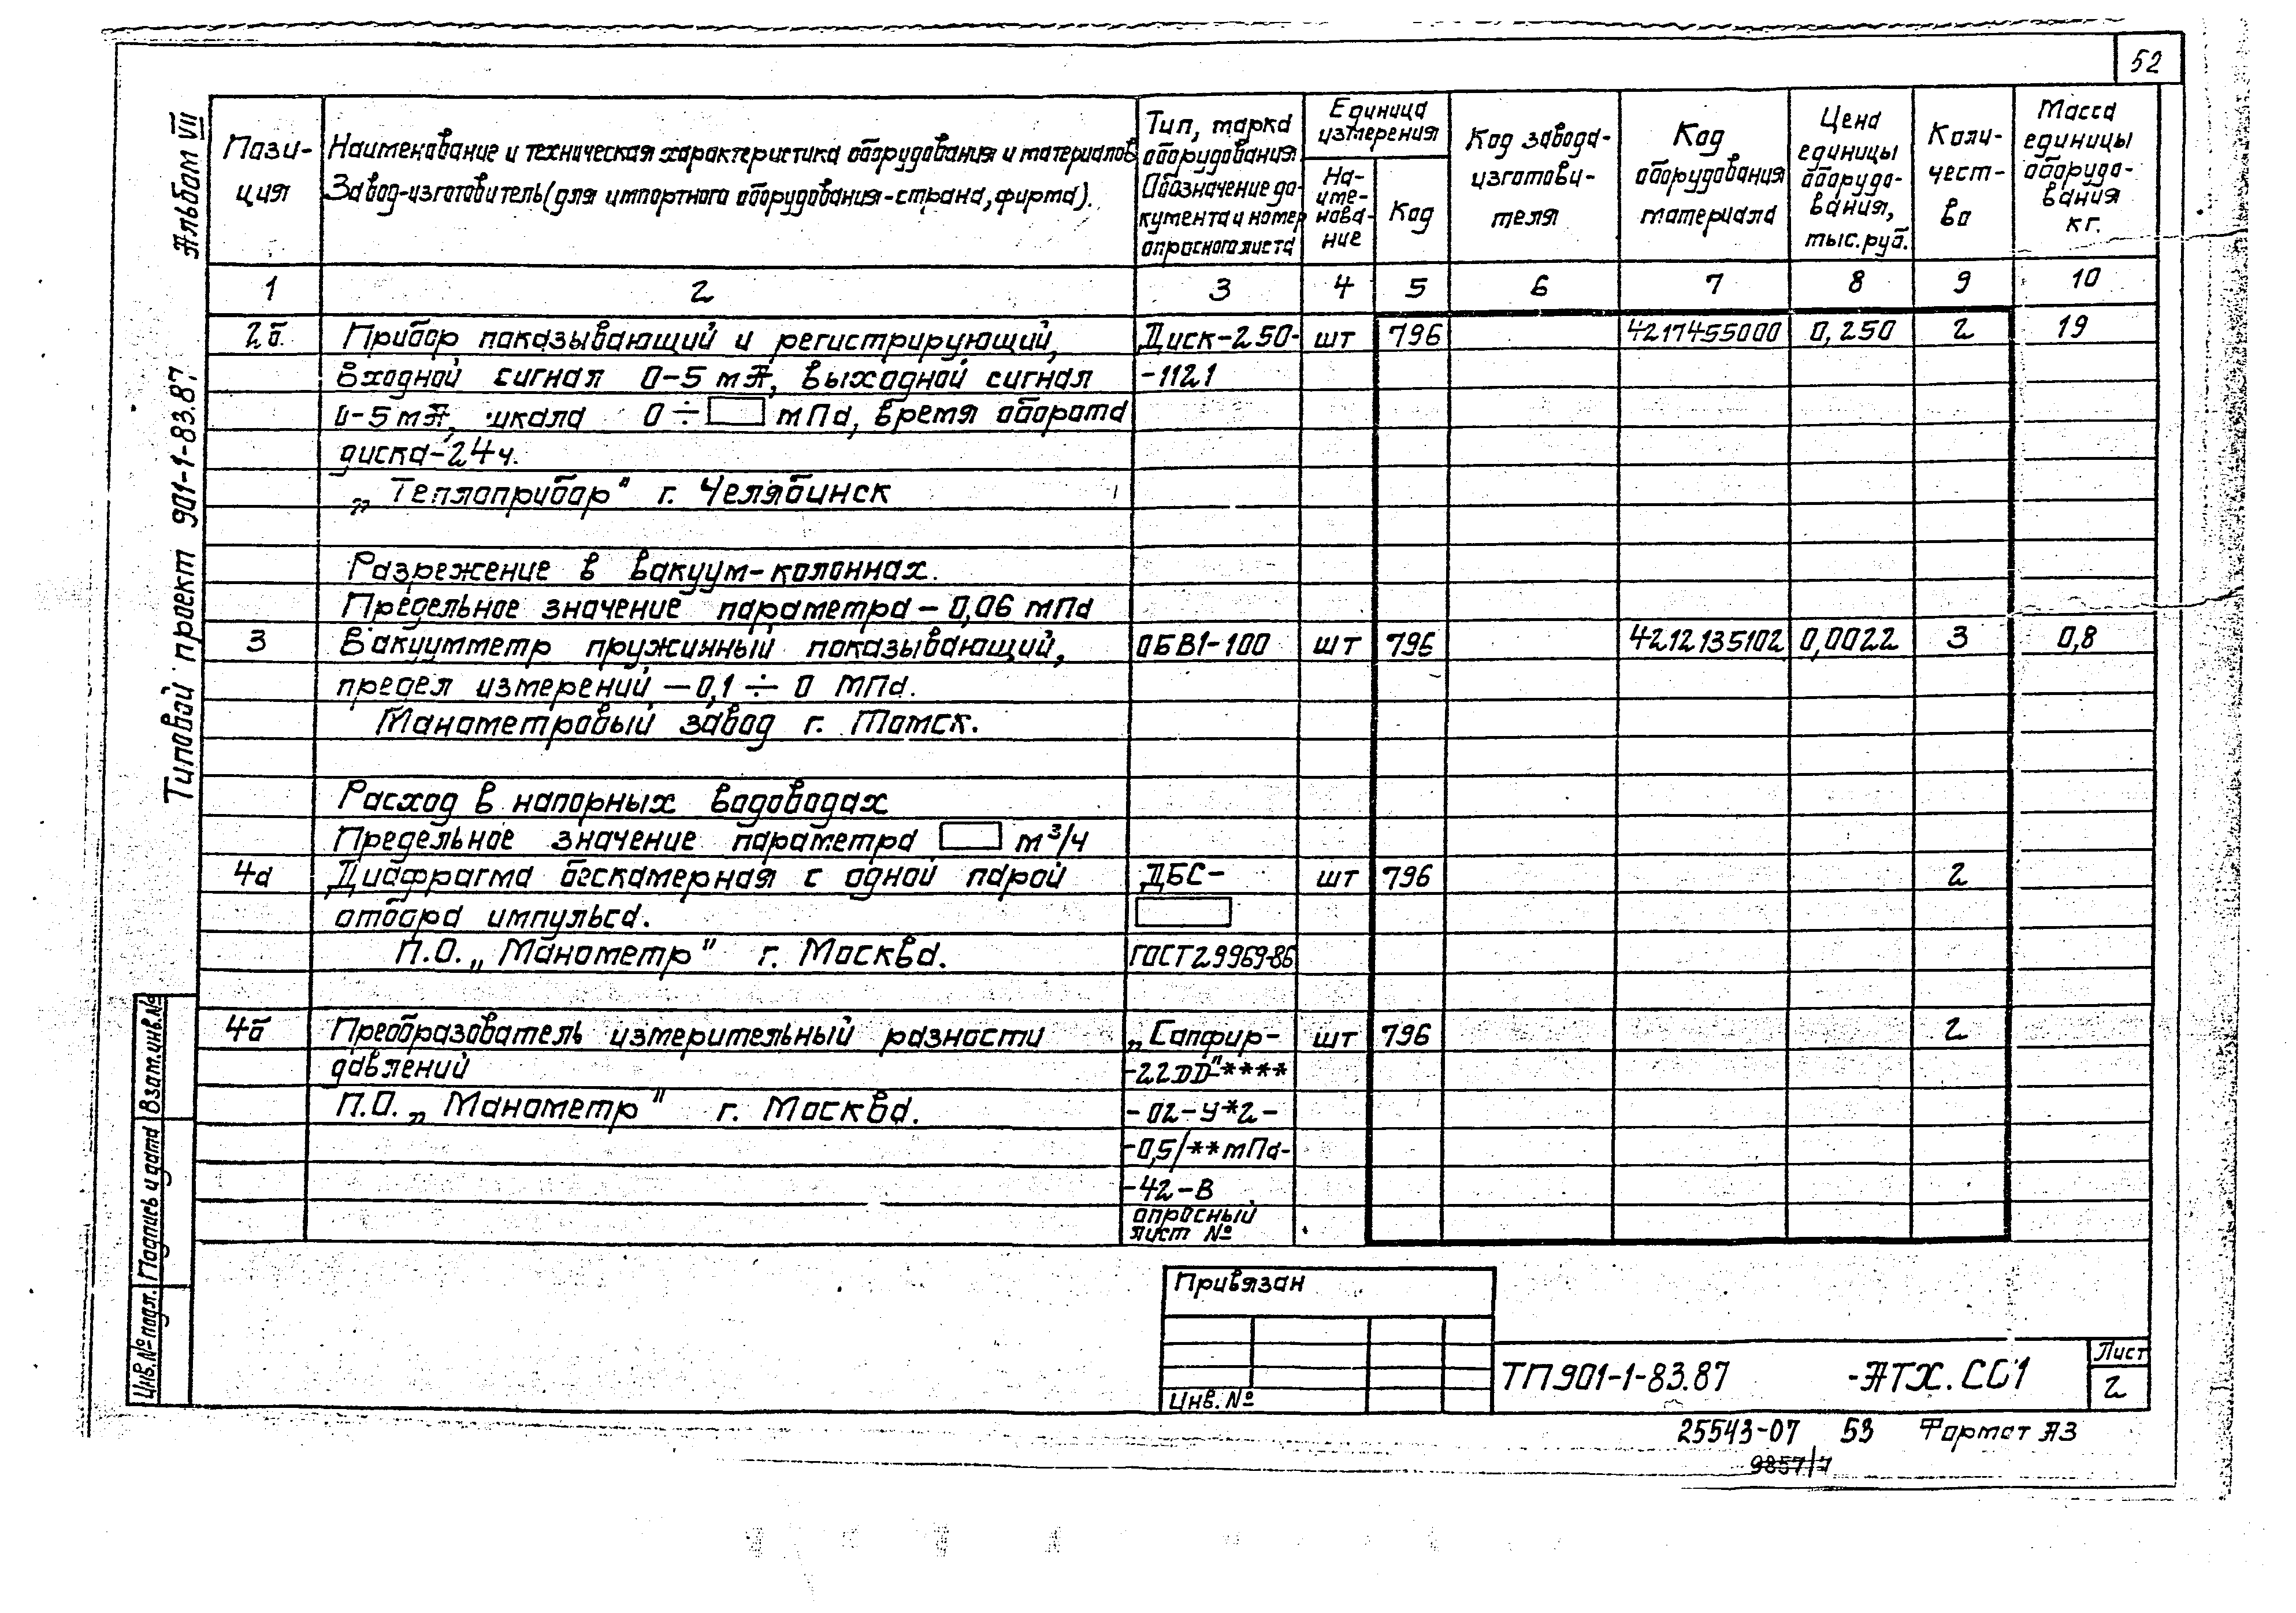 52
Альбом VII
Типовой проект 901-1-83.87
Пози-
ция
Наименование и техническая характеристика оборудования и материалов
Завод-изготовитель (для импортного оборудования-страна, фирма).
Тип, марка
оборудования
Обозначение до-
кумента и номер
опросного листа
Единица
измерения
На-
име-
нова-
ние
Код
Код завода-
изготови-
теля
Код
оборудования
материала
Цена
единицы
оборудо-
вания,
тыс. руб.
Коли-
чест-
во
Масса
единицы
оборудо-
вания
кг.
1 2 3 4 5 6 7 8 9 10
2б. Прибор показывающий и регистрирующий, Диск-250- шт 796 4217455000 0,250 2 19
входной сигнал 0-5 мА, выходной сигнал -1121
0-5 мА, шкала 0 ÷ мПа, время оборота
диска-24ч.
„Теплоприбор" г. Челябинск
Разрежение в вакуум-колоннах.
Предельное значение параметра - 0,06 мПа
3 Вакуумметр пружинный показывающий, ОБВ1-100 шт 796 4212135102 0,0022 3 0,8
предел измерений -0,1 ÷ 0 МПа.
Манометровый завод г. Томск.
Расход в напорных водоводах
Предельное значение параметра м³/ч
4а Диафрагма бескамерная с одной парой ДБС- шт 796 2
отбора импульса.
П.О. „Манометр" г. Москва. ГОСТ 29969-86
4б Преобразователь измерительный разности „Сапфир- шт 796 2
давлений -22ДД"****
П.О. „Манометр" г. Москва. -02-У*2-
-0,5/**мПа-
-42-В
опросный
лист №
Взам.инв.№
Подпись и дата
Инв.№ подл.
Привязан
Инв. №
ТП 901-1-83.87 -АТХ.СО1
Лист
2
25543-07 53 Формат А3
9857/7